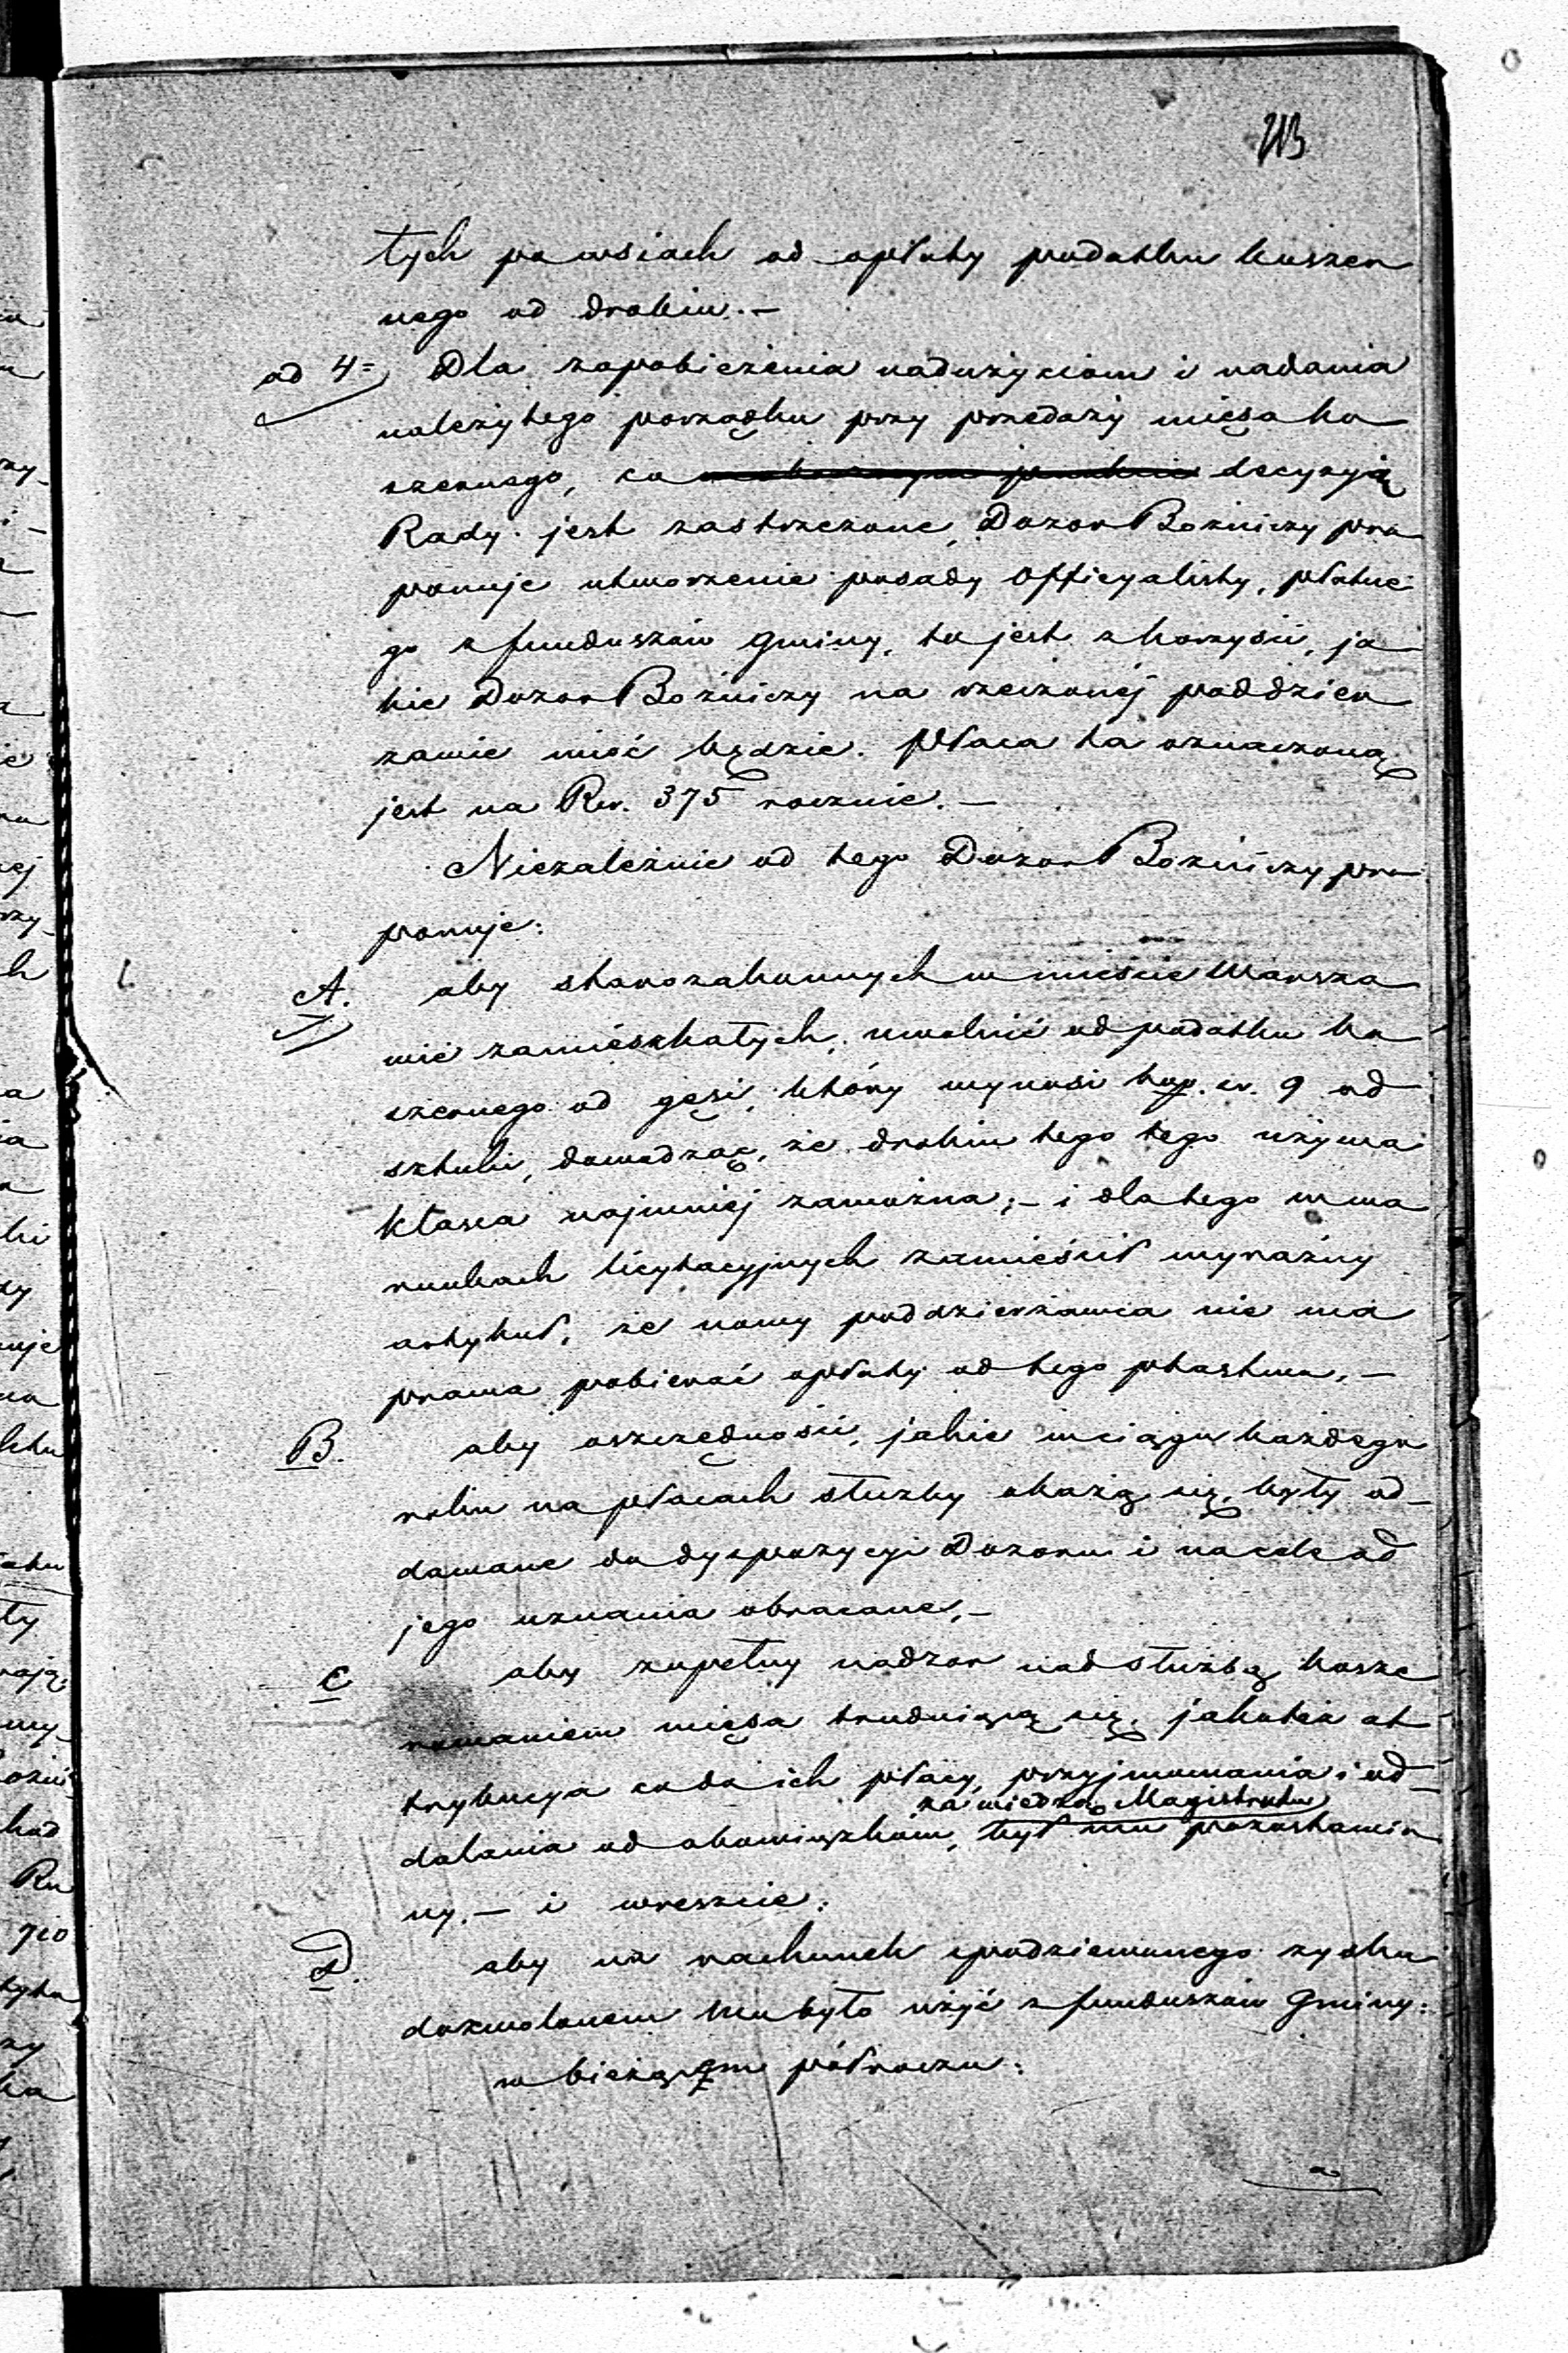 213
tych po wsiach od opłaty podatku koszer
nego od drobiu. —
ad 4= Dla zapobieżenia nadużyciom i nadania
należytego porządku przy przedaży mięsa ko
szernego, co decyzyją
Rady jest zastrzeżone, Dozór Bożniczy pro
ponuje utworzenie posady Officyalisty, płatne
go z funduszów Gminy, to jest z korzyści, ja
kie Dozór Bożniczy na rzeczonej poddzier
żawie mieć będzie. Płaca ta oznaczoną
jest na Rsr. 375 rocznie. —
Niezależnie od tego Dozór Bożniczy pro
ponuje:
A. aby starozakonnych w mieście Warsza
wie zamieszkałych, uwolnić od podatku ko
szernego od gęsi, który wynosi kop. sr. 9 od
sztuki, dowodząc, że drobiu tego tego używa
klasa najmniej zamożna; — i dlatego w wa
runkach licytacyjnych zamieścił wyraźny
artykuł, że nowy poddzierżawca nie ma
prawa pobierać opłaty od tego ptastwa, —
B. aby oszczędności, jakie w ciągu każdego
roku na płacach służby okażą się, były od_
dawane do dyspozycyi Dozoru i na cele od
jego uznania obracane, —
C aby zupełny nadzór nad służbą kosze
rowaniem mięsa trudniącą się, jakoteż at
trybucya co do ich płacy, przyjmowania i od_
za wiedzą Magistratu
dalania od obowiązków, był mu pozostawio
ny. — i wreszcie:
D. aby na rachunek spodziewanego zysku
dozwolonem mu było użyć z funduszów Gminy:
w bieżącem półroczu: